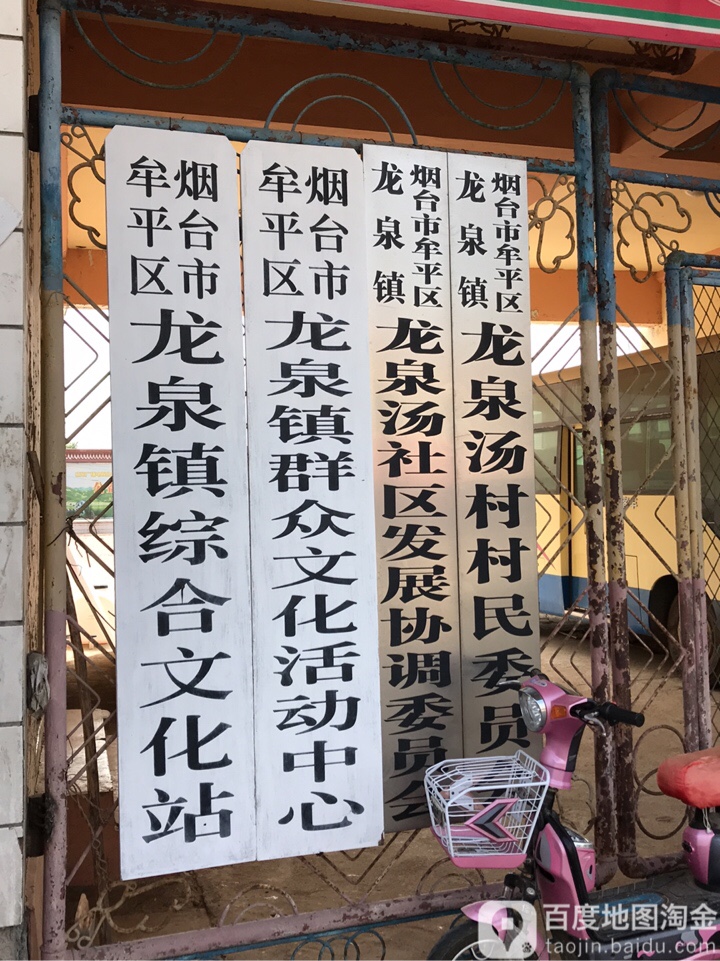 烟台市
牟平区
龙泉镇综合文化站
烟台市
牟平区
龙泉镇群众文化活动中心
烟台市牟平区
龙泉镇
龙泉汤社区发展协调委员会
烟台市牟平区
龙泉镇
龙泉汤村村民委员
百度地图淘金
taojin.baidu.com